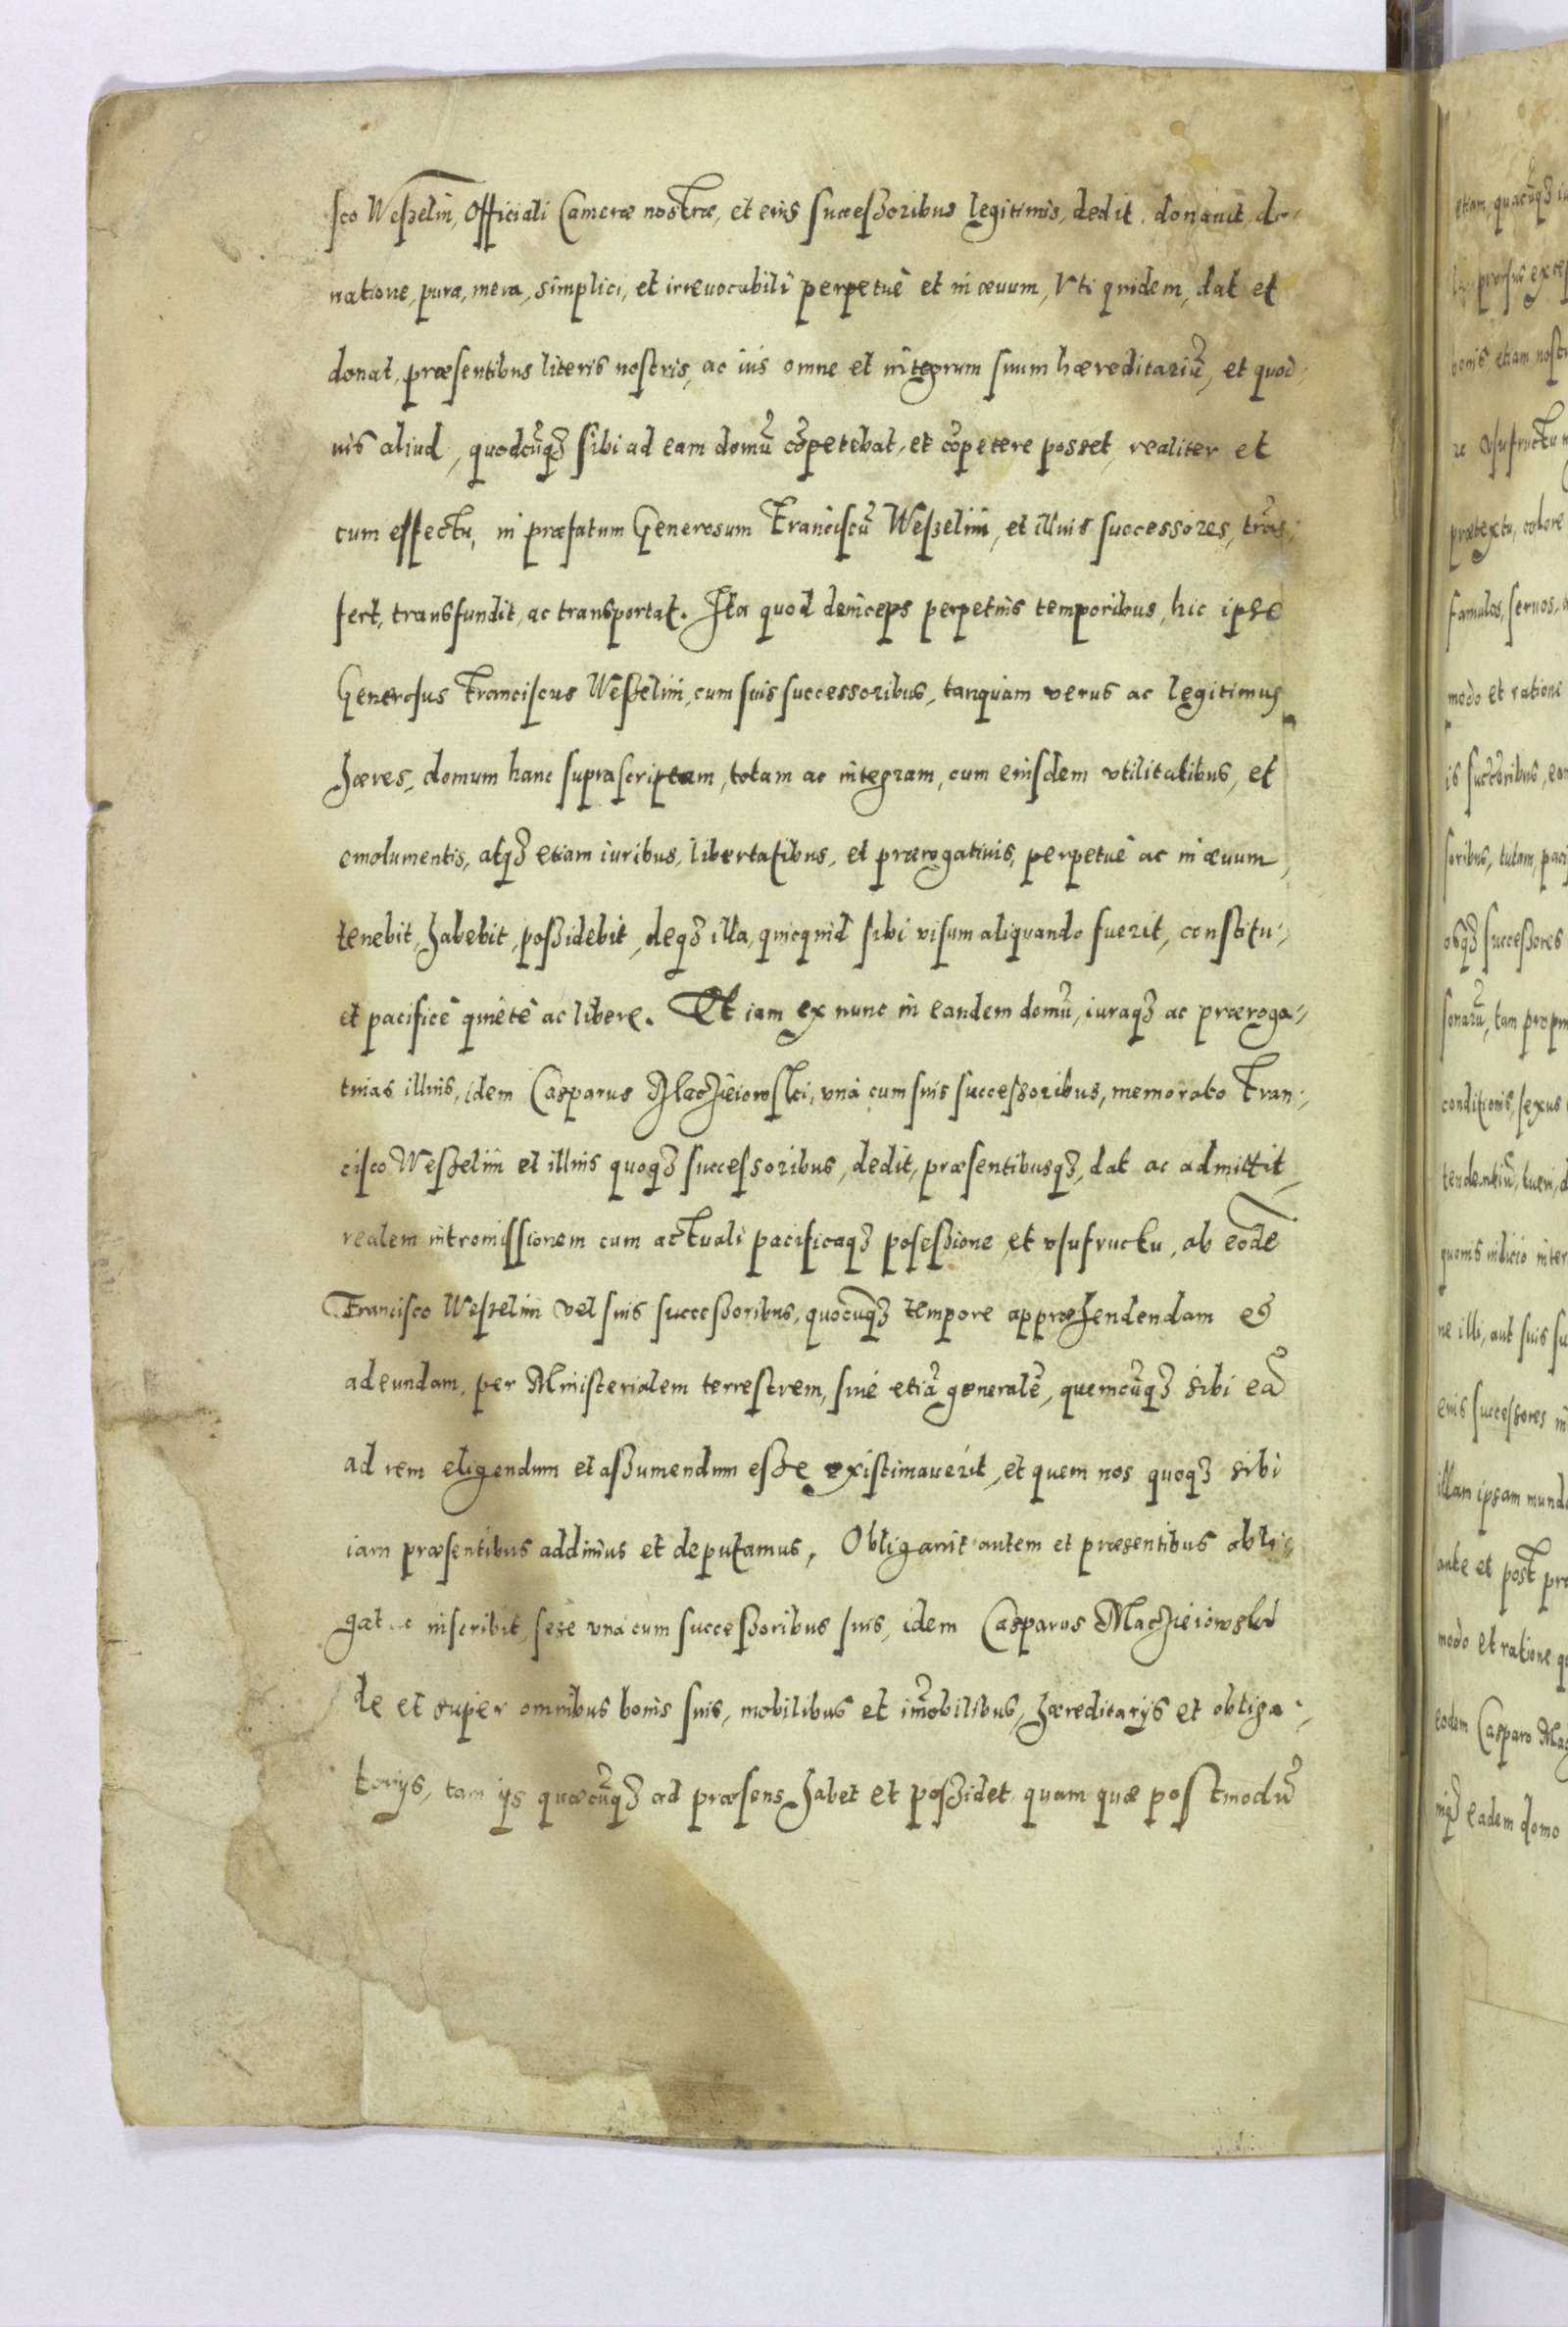 sco Weszelini, Officiali Cameræ nostræ, et eius successoribus legitimis, dedit, donauit do-
natione, pura, mera, simplici, et irreuocabili perpetuè et in æuum, Vti quidem, dat et
donat, præsentibus literis nostris, ac ius omne et integrum suum hæreditariũ, et quod-
uis aliud, quodcũqʒ sibi ad eam domũ cõpetebat, et cõpetere posset, realiter et
cum effectu, in præfatum Generosum Franciscũ Weszelini, et illius successores, trãs-
fert, transfundit, ac transportat. Ita quod deinceps perpetuis temporibus, hic ipse
Generosus Franciscus Weszelini, cum suis successoribus, tanquam verus ac legitimus
hæres, domum hanc suprascriptam, totam ac integram, cum eiusdem vtilitatibus, et
emolumentis, atqʒ etiam iuribus, libertatibus, et prærogatiuis, perpetuè ac in æuum,
tenebit, habebit, possidebit, deqʒ illa, quicquid sibi visum aliquando fuerit, constitu-
et pacificè quietè ac liberè. Et iam ex nunc in eandem domũ, iuraqʒ ac præroga-
tiuas illius, idem Casparus Macżieiowski, vnà cum suis successoribus, memorato Fran-
cisco Weszelini et illius quoqʒ successoribus, dedit, præsentibusqʒ, dat ac admittit,
realem intromissionem cum actuali pacificaqʒ posessione, et vsufructu, ab eodẽ
Francisco Weszelini vel suis successoribus, quocũqʒ tempore appræhendendam et
adeundam, per Ministerialem terrestrem, siue etiã generalẽ, quemcũqʒ sibi eã
ad rem eligendum et assumendum esse existimauerit, et quem nos quoqʒ sibi
iam præsentibus addimus et deputamus, Obligauit autem et præsentibus obli-
gat ac inscribit, sese vnà cum successoribus suis, idem Casparus Macżieiowski
de et super omnibus bonis suis, mobilibus et im̃obilibus, hæreditarijs et obliga-
torijs, tam ijs quæcũqʒ ad præsens habet et possidet, quam quæ postmodũ
etiam, quacũqʒ
prorsus
bonis, etiam
re vsufructu
prætextu, colore
famulos, seruos,
modo et ratione
is successoribus,
soribus, tutam,
osqʒ successores
sonarũ, tam
conditionis, sexus
tendentiũ, tueri,
quouis iudicio
ne illi, aut suis
eius successores
illam ipsam
ante et post
modo et ratione
eodem Casparo
eadem domo